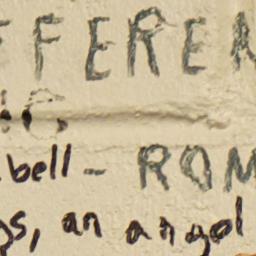 FFEREN
G
bell - ROM
gs, an angel